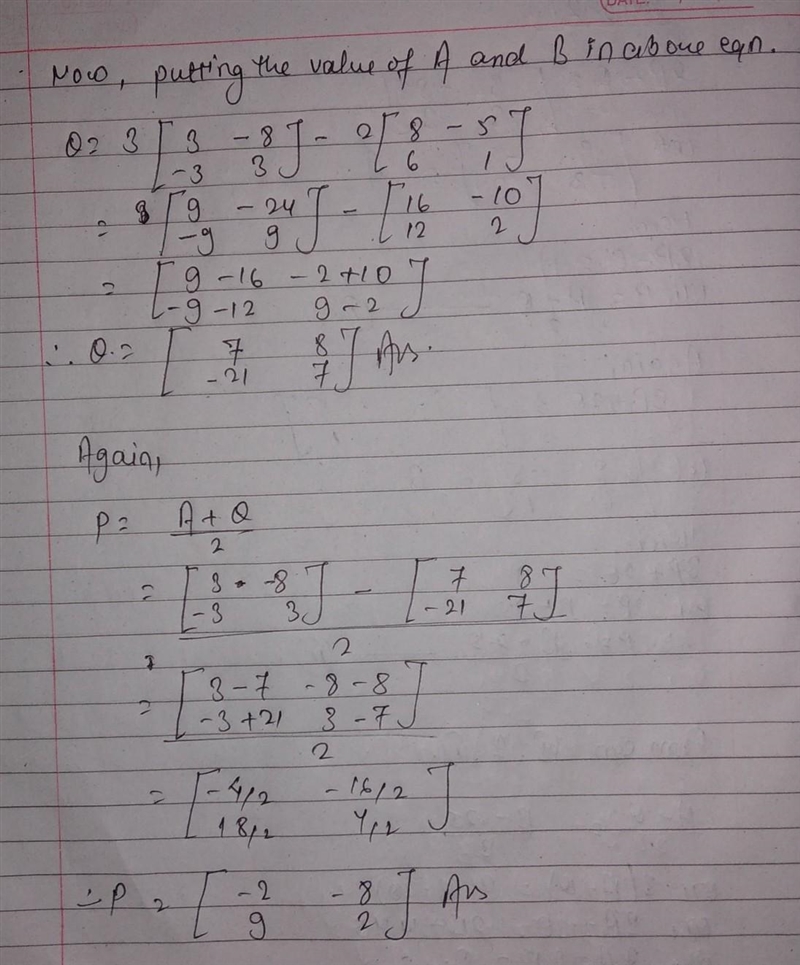 Now, putting the value of A and B in above eqn.
Q = 3 [ 3 -8 ] - 2 [ 8 -5 ]
-3 3 6 1
= [ 9 -24 ] - [ 16 -10 ]
-9 9 12 2
= [ 9-16 -2+10 ]
-9-12 9-2
∴ Q = [ 7 8 ] Ans.
-21 7
Again,
P = A + Q
2
= [ 3 -8 ] - [ 7 8 ]
-3 3 -21 7
2
= [ 3-7 -8-8 ]
-3+21 3-7
2
= [ -4/2 -16/2 ]
18/2 4/2
∴ P = [ -2 -8 ] Ans
9 2